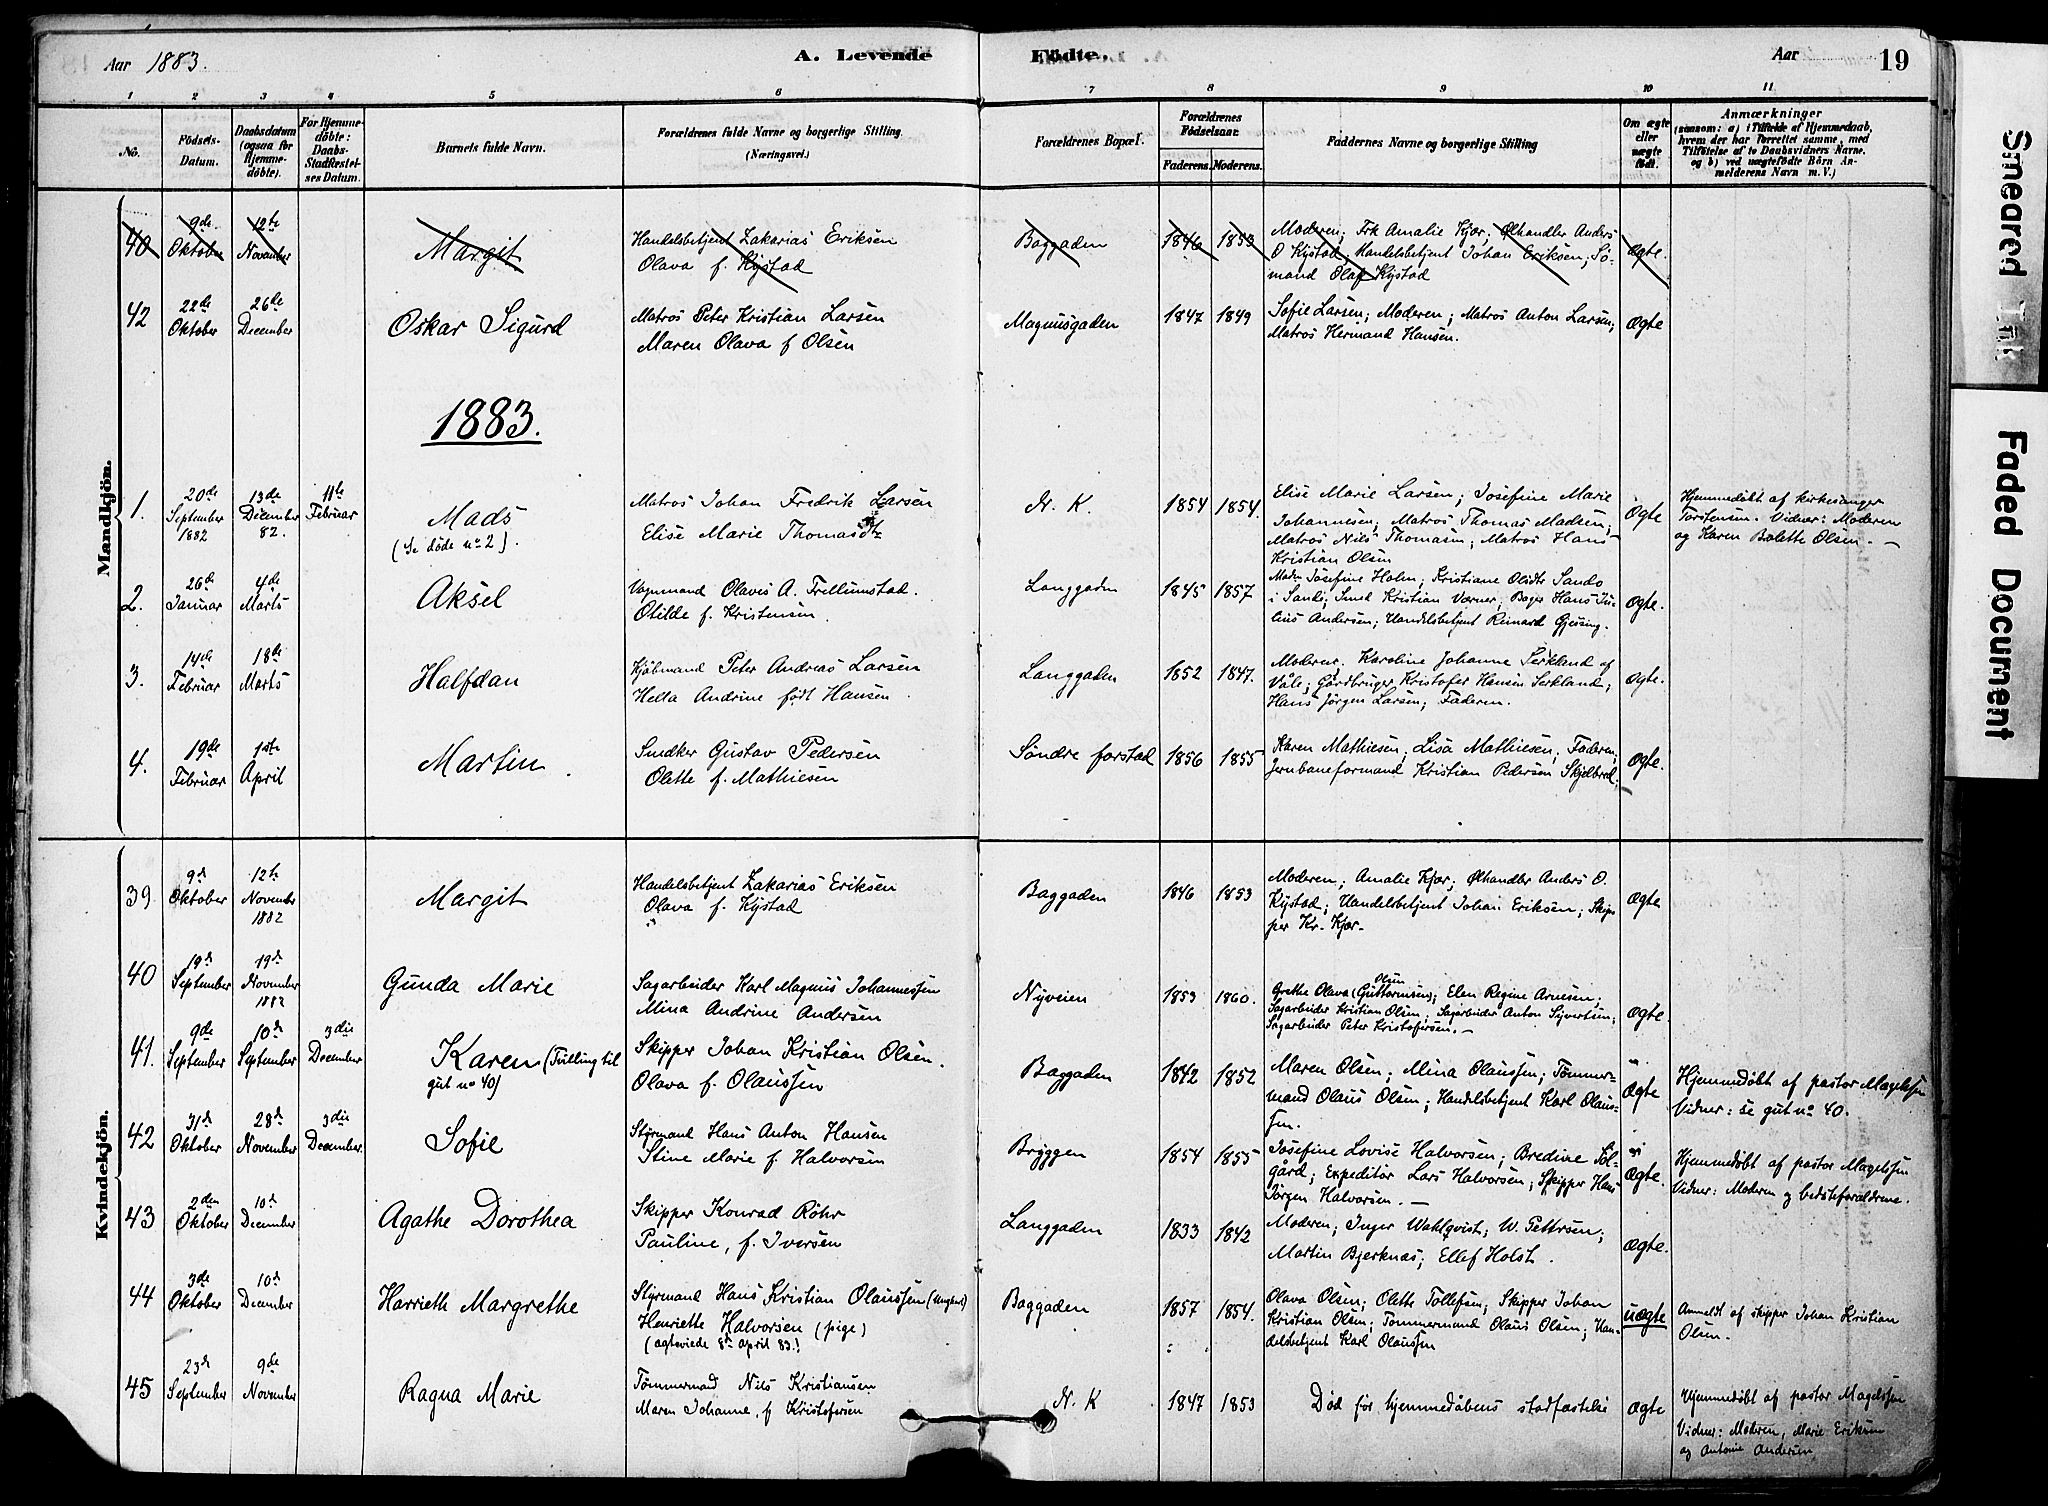 Aar 1883.
A. Levende
Födte.
Aar
19
1 2 3 4 5 6 7 8 9 10 11
No.
Födsels-
Datum.
Daabsdatum
(ogsaa for
Hjemme-
døbte).
For Hjemme-
döbte:
Daabs-
Stadfæstel-
ses Datum.
Barnets fulde Navn.
Forældrenes fulde Navne og borgerlige Stilling
(Næringsvei.)
Forældrenes Bopæl.
Forældrenes
Födselsaar.
Faderens. Moderens.
Faddernes Navne og borgerlige Stilling
Om ægte
eller
uægte
födt.
Anmærkninger
(saasom: a) i Tilfælde af Hjemmedaab,
hvem der har forrettet samme, med
Tilföielse af to Daabsvidners Navne,
og b) ved uægtefödte Börn An-
melderens Navn m. V.)
Mandkjön.
40
9de
Oktober
12te
November
Margit
Handelsbetjent Zakarias Eriksen
Olava f. Kystad
Baggaden
1846 1853
Moderen; Frk Amalie Kjær. Ølhandler Anders
O Kystad; Handelsbetjent Johan Eriksen; Sø-
mand Olaf Kystad
Ægte.
42
22de
Oktober
26de
December
Oskar Sigurd
Matros Peter Kristian Larsen
Maren Olava f Olsen
Magnusgaden
1847 1849
Sofie Larsen; Moderen; Matros Anton Larsen;
Matros Hermand Hansen.
Ægte
1883.
1.
20de
September
1882
13de
December
82.
11te
Februar
Mads
(Se døde no 2).
Matros Johan Fredrik Larsen
Elise Marie Thomasdtr
N. K.
1854 1854.
Elise Marie Larsen; Josefine Marie
Johannesen; Matros Thomas Madsen;
Matros Nils Thomasen; Matros Hans
Kristian Olsen
Ægte
Hjemmedøbt af kirkesanger
Torstensen. Vidner: Moderen
og Karen Bolette Olsen. —
2.
26de
Januar
4de
Marts
Aksel
Vognmand Olavis A. Trellumstad.
Otilde f. Kristensen.
Langgaden
1845 1857
Mad. Josefine Holm; Kristiane Olsdtr Sando
i Sande; Smed Kristian Værner; Bager Hans Ju-
lius Andersen; Handelsbetjent Reinard Gjessing.
Ægte.
3.
14de
Februar
18de
Marts
Halfdan
Kjøbmand Peter Andreas Larsen
Helta Andrine født Hansen.
Langgaden
1852 1847.
Moderen. Karoline Johanne Serkland af
Våle; Gårdbruger Kristofer Hansen Serkland;
Hans Jørgen Larsen; Faderen.
Ægte.
4.
19de
Februar
1ste
April
Martin.
Snedker Gustav Pedersen
Olette f. Mathiesen
Søndre forstad
1856 1855
Karen Mathiesen; Lisa Mathiesen; Faderen;
Jernbaneformand Kristian Pedersen Skjelbred.
Ægte.
Kvindekjön.
39
9d
Oktober
12te
November
1882
Margit
Handelsbetjent Zakarias Eriksen
Olava f. Kystad
Baggaden
1846 1853
Moderen; Amalie Kjær; Ølhandler Anders O.
Kystad; Handelsbetjent Johan Eriksen; Skip-
per Kr. Kjær.
Ægte
40
19d
September
19d
November
1882
Gunda Marie
Sagarbeider Karl Magnus Johannessen
Mina Andrine Andersen
Nyveien
1853 1860.
Olsen
Grethe Olava (Guttormsen); Elen Regine Arnesen;
Sagarbeider Kristian Olsen; Sagarbeider Anton Syvertsen;
Sagarbeider Peter Kristofersen. —
Ægte.
41.
9de
September
10d
September
3die
December
Karen (Tvilling til
gut no 40)
Skipper Johan Kristian Olsen.
Olava f. Olaussen
Baggaden
1842 1852
Maren Olsen; Mina Olaussen; Tømmer-
mand Olaus Olsen; Handelsbetjent Karl Olaus-
sen.
Ægte
Hjemmedøbt af pastor Magelssen
Vidner: se gut no 40.
42
31d
Oktober
28d
November
3die
December.
Sofie
Styrmand Hans Anton Hansen
Stine Marie f. Halvorsen
Bryggen
1854 1855
Josefine Lovise Halvorsen; Bredine Sol-
gård; Expeditør Lars Halvorsen; Skipper Hans
Jørgen Halvorsen. —
Ægte.
Hjemmedøbt af pastor Magelssen
Vidner: Moderen og bedsteforældrene.
43
2den
Oktober
10d
December
Agathe Dorothea
Skipper Konrad Röhr
Pauline, f. Iversen
Langgaden
1833 1842
Moderen; Inger Wahlqvist; W. Pettersen;
Martin Bjerknæs; Ellef Holst.
Ægte.
44
3de
Oktober
10d
December
Harrieth Margrethe
Styrmand Hans Kristian Olaussen (Ungkarl)
Henriette Halvorsen (pige)
(ægteviede 8d april 83.)
Baggaden
1857 1854.
Olava Olsen; Olette Tollefsen; Skipper Johan
Kristian Olsen; Tømmermand Olaus Olsen; Han-
delsbetjent Karl Olaussen
uægte
Anmeldt af skipper Johan Kristian
Olsen.
45
23d
September
9de
November
Ragna Marie
Tømmermand Nils Kristiansen
Maren Johanne. f Kristofersen
N. K
1847 1853
Død før hjemmedåbens stadfæstelse
Ægte
Hjemmedøbt af pastor Magelssen
Vidner: Moderen, Marie Eriksen
og Antonie Andersen
Smeared Ink
Faded Document